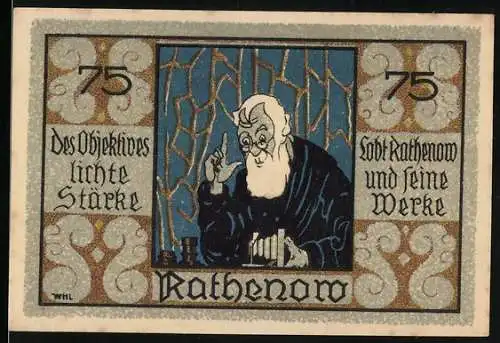 75
75
Des Objektives
lichte
Stärke
Lobt Rathenow
und seine
Werke
Rathenow
WHL